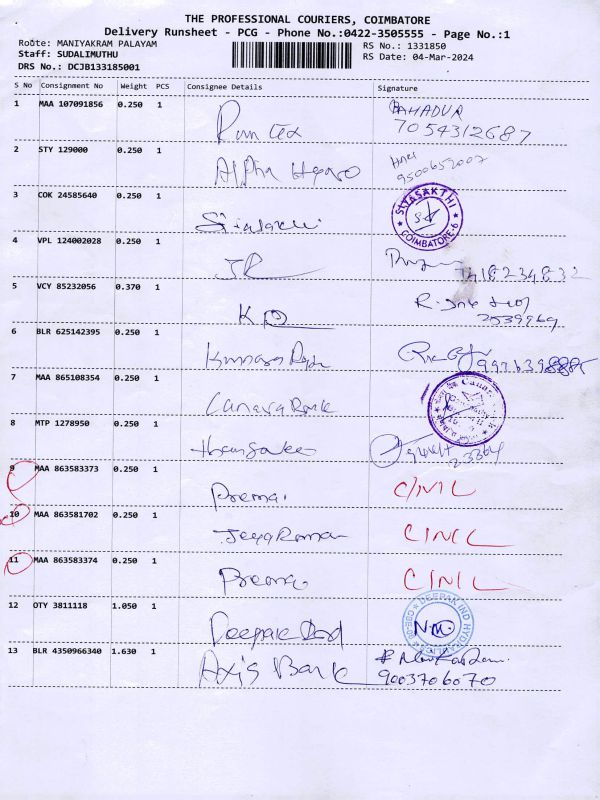 THE PROFESSIONAL COURIERS, COIMBATORE
Delivery Runsheet - PCG - Phone No.:0422-3505555 - Page No.:1
Route: MANIYAKRAM PALAYAM
Staff: SUDALIMUTHU
DRS No.: DCJB133185001
RS No.: 1331850
RS Date: 04-Mar-2024
S No Consignment No Weight PCS Consignee Details Signature
1 MAA 107091856 0.250 1 BAHADUR
7054312687
2 STY 129000 0.250 1 Alpha
9500652007
3 COK 24585640 0.250 1 SIVASAKTHI COIMBATORE-6
4 VPL 124002028 0.250 1 JR
5 VCY 85232056 0.370 1 KP
2539969
6 BLR 625142395 0.250 1
7 MAA 865108354 0.250 1 Canara Bank
8 MTP 1278950 0.250 1
9 MAA 863583373 0.250 1 Prema.
10 MAA 863581702 0.250 1 JeyaRaman
11 MAA 863583374 0.250 1 Prema.
12 OTY 3811118 1.050 1 Deepak Ind DEEPAK IND HYDRAULICS
13 BLR 4350966340 1.630 1 Axis Bank
9003706070